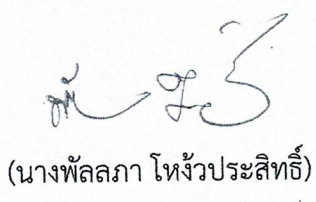 (นางพัลลภา โหง้วประสิทธิ์)